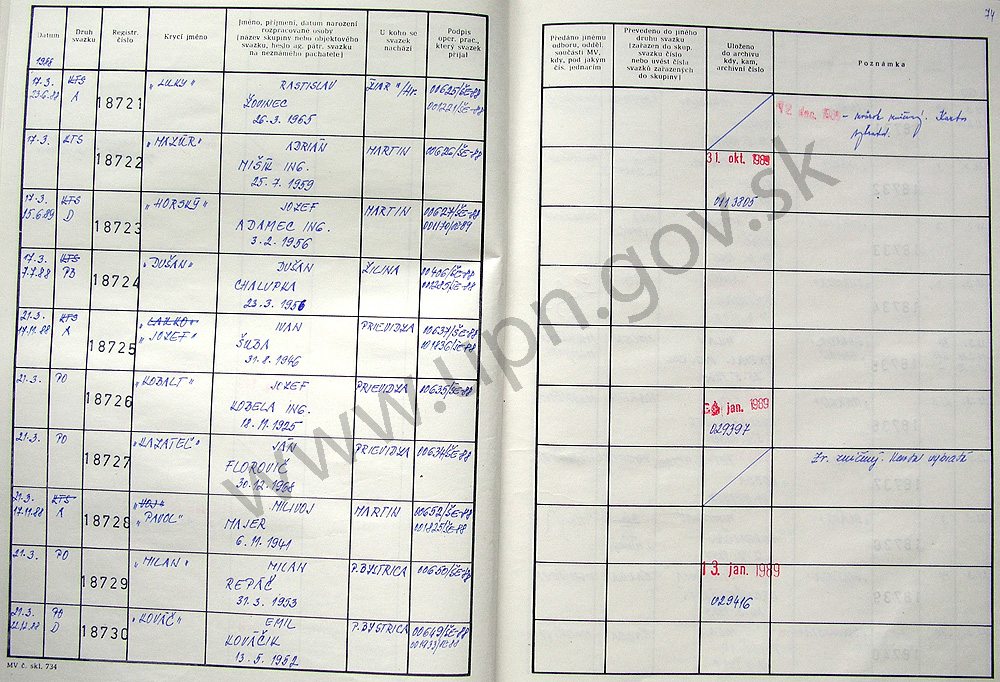 Datum
Druh svazku
Registr. číslo
Krycí jméno
Jméno, příjmení, datum narození
rozpracované osoby
(název skupiny nebo objektového
svazku, heslo ag. pátr. svazku
na neznámého pachatele)
U koho se
svazek
nachází
Podpis
oper. prac.,
který svazek
přijal
1988
17.3. KTS „LUKY" RASTISLAV ŽIAR n/Hr. 00625/ŠE-88
23.6.88 A 18721 ŽOVINEC 001221/ŠE-88
26.3.1965
17.3. KTS „MAZÚR" ADRIÁN MARTIN 00626/ŠE-88
18722 MIŠÍK ING.
25.7.1959
17.3. KTS „HORSKÝ" JOZEF MARTIN 00627/ŠE-88
15.6.89 D 18723 ADAMEC ING.
3.2.1956
17.3. KTS „DUŠAN" DUŠAN ŽILINA 00406/ŠE-88
7.7.88 PB 18724 CHALUPKA
23.3.1956
21.3. KTS „LAZKO" IVAN PRIEVIDZA 00637/ŠE-88
17.11.88 A 18725 „JOZEF" ŠUBA 001836/ŠE-88
31.8.1946
21.3. PO „KOBALT" JOZEF PRIEVIDZA 00635/ŠE-88
18726 KOBELA ING.
18.11.1925
21.3. PO „KAZATEĽ" JÁN PRIEVIDZA 00634/ŠE-88
18727 FLOROVIČ
30.12.1968
21.3. KTS MILIVOJ MARTIN 00652/ŠE-88
17.11.88 A 18728 „PAVOL" MAJER 001825/ŠE-88
6.11.1941
21.3. PO „MILAN" MILAN P.BYSTRICA 00650/ŠE-88
18729 REPÁČ
31.3.1953
21.3. PO „KOVÁČ" EMIL P.BYSTRICA 00649/ŠE-88
D 18730 KOVÁČIK
13.5.1952
MV č. skl. 734
74
Předáno jinému
odboru, odděl.
součásti MV,
kdy, pod jakým
čís. jednacím
Převedeno do jiného
druhu svazku
(zařazen do skup.
svazku číslo
nebo uvést čísla
svazků zařazených
do skupiny)
Uloženo
do archivu
kdy, kam,
archivní číslo
Poznámka
31. okt. 1989
0113805
jan. 1989
029397
Zv. zničený. Karta vybratá
13. jan. 1989
029416
www.upn.gov.sk